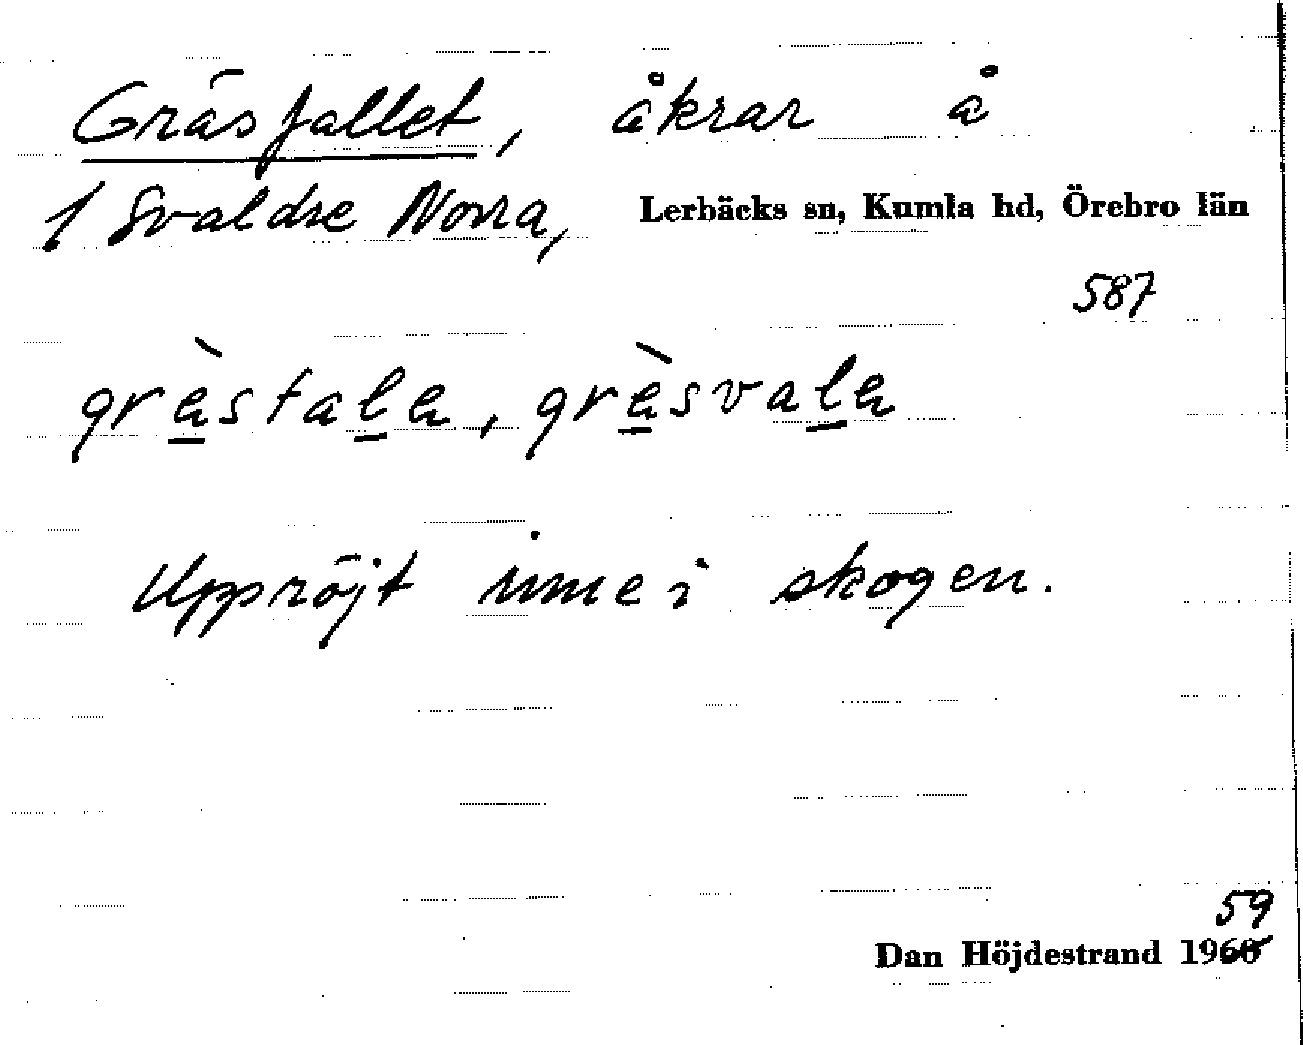 Gräsfallet, åkrar å
1 Svaldre Norra, Lerbäcks sn, Kumla hd, Örebro län
587
grà̱sfaḻa, grà̱svaḻa
Uppröjt inne i skogen.
59
Dan Höjdestrand 1960